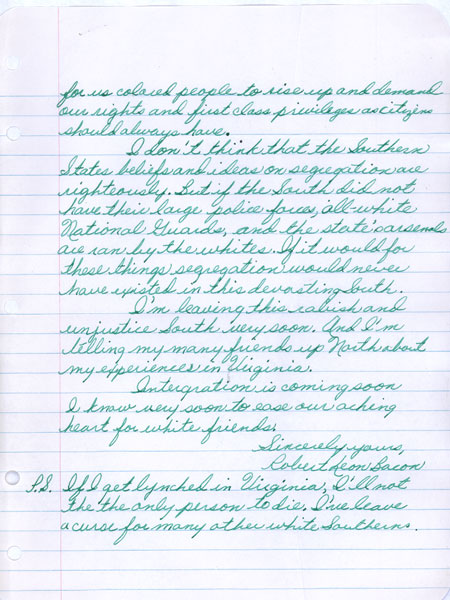 for us colored people to rise up and demand
our rights and first class privileges as citizens
should always have.
I don't think that the Southern
States beliefs and ideas on segregation are
righteously. But if the South did not
have their large police forces, all-white
National Guards, and the state's arsenals
are ran by the whites. If it would for
these things segregation would never
have existed in this devasting South.
I'm leaving this rabish and
unjustice South very soon. And I'm
telling my many friends up North about
my experiences in Virginia.
Intergration is coming soon
I know very soon to ease our aching
heart for white friends.
Sincerely yours,
Robert Leon Bacon
P.S. If I get lynched in Virginia, I'll not
the the only person to die. I've leave
a curse for many other white Southerns.